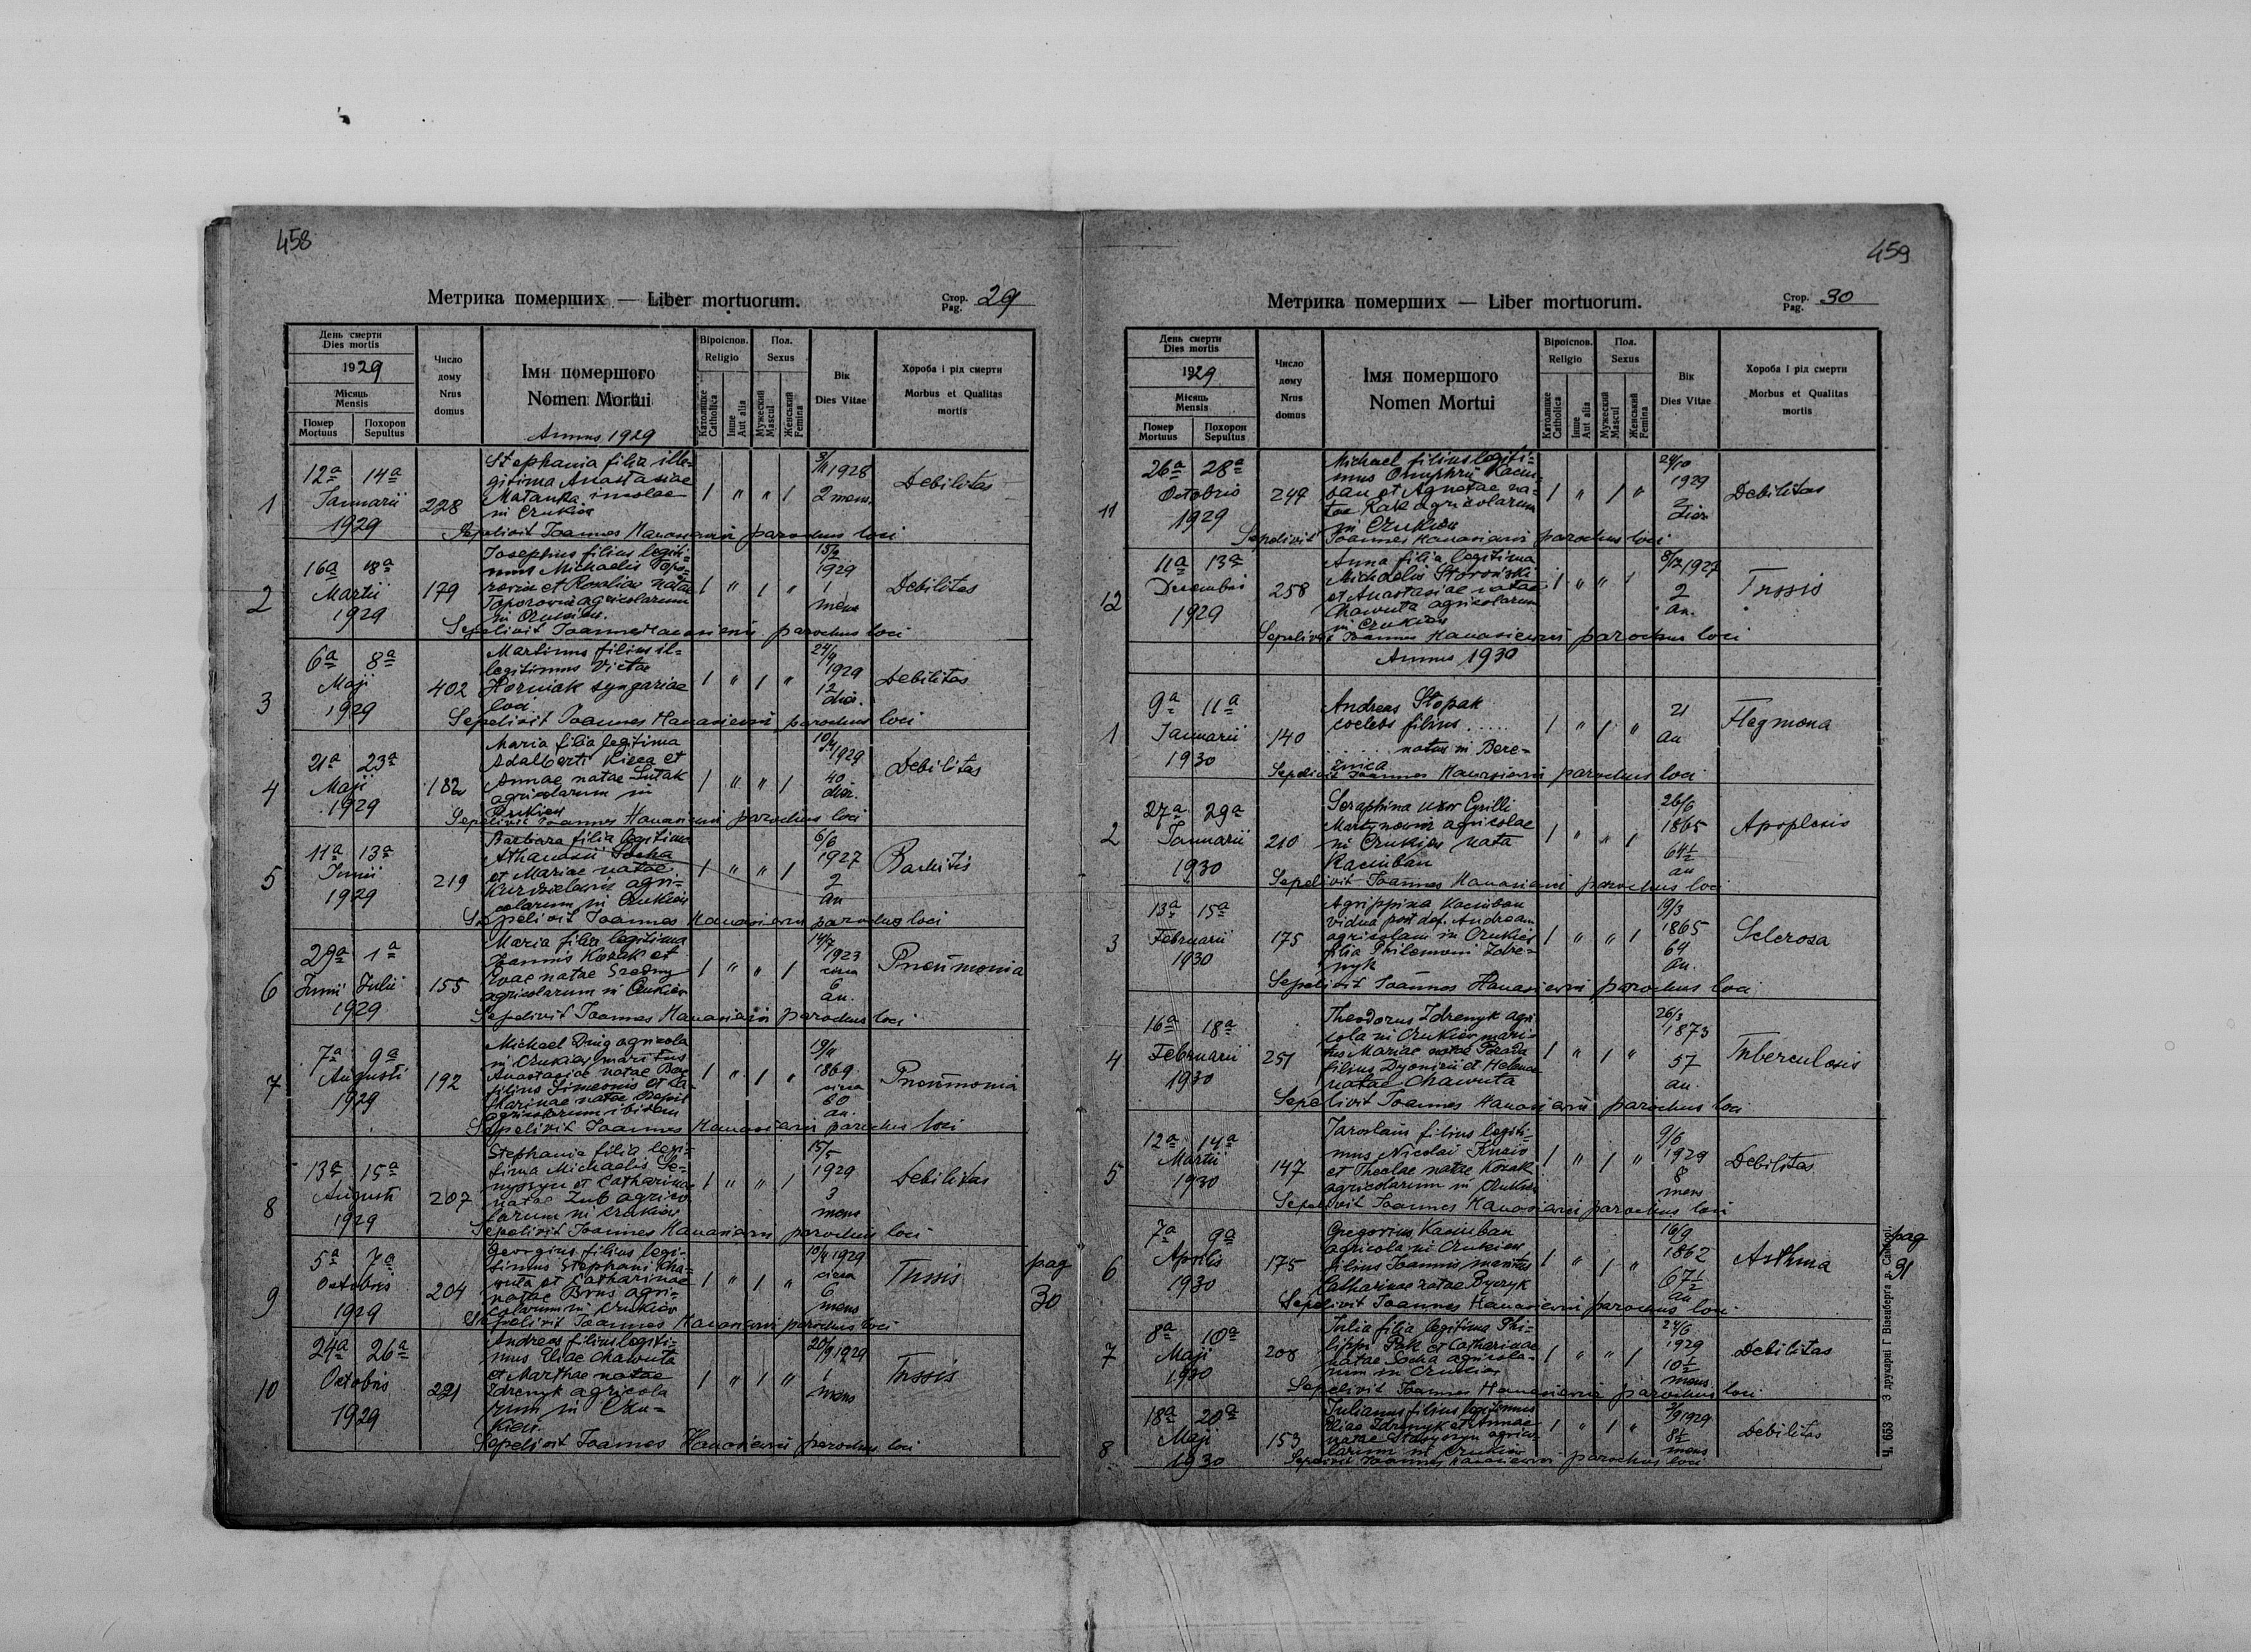 458
Метрика померших — Liber mortuorum.
Стор.
Pag. 29
День смерти
Dies mortis
1929
Місяць
Mensis
Помер
Mortuus
Похорон
Sepultus
Число
дому
Nrus
domus
Імя помершого
Nomen Mortui
Annus 1929
Віроіспов.
Religio
Католицке
Catholica
Інше
Aut alia
Пол.
Sexus
Мужеский
Mascul
Женський
Femina
Вік
Dies Vitae
Хороба і рід смерти
Morbus et Qualitas
mortis
1
12a 14a
Januarii
1929
228
Stephania filia ille-
gitima Anastasiae
incolae
in Crukien
3/11 1928
2 mens.
Debilitas
Sepelivit Joannes Hanasiewicz parochus loci
2
16a 18a
Martii
1929
179
Josephus filius legiti-
mus Michaelis Topo-
rowicz et Rosaliae natae
Toporowicz agricolarum
in Crukien.
15/2
1929
1
mens
Debilitas
Sepelivit Joannes Hanasiewicz parochus loci
3
6a 8a
Maji
1929
402
Martinus filius il-
legitimus Victae
Horniak
loci
24/4
1929
12
dies.
Debilitas
Sepelivit Joannes Hanasiewicz parochus loci
4
21a 23a
Maji
1929
182
Maria filia legitima
Adalberti Kicca et
Annae natae Lutak
agricolarum in
Crukien
10/4
1929
40
dies.
Debilitas
Sepelivit Joannes Hanasiewicz parochus loci
5
11a 13a
Junii
1929
219
Barbara filia legitima
Athanasii Socha
et Mariae natae
agri-
colarum in Crukien
6/6
1927
2
an
Sepelivit Joannes Hanasiewicz parochus loci
6
29a 1a
Junii Julii
1929
155
Maria filia legitima
Joannis Kozak et
Evae natae
agricolarum in Crukien
14/7
1923
circa
6
an.
Pneumonia
Sepelivit Joannes Hanasiewicz parochus loci
7
7a 9a
Augusti
1929
192
Michael agricola
in Crukien maritus
Anastasiae natae
filius Simeonis et Ca-
tharinae natae
agricolarum ibidem
19/11
1869
circa
60
an.
Pneumonia
Sepelivit Joannes Hanasiewicz parochus loci
8
13a 15a
Augusti
1929
207
Stephania filia legi-
tima Michaelis
et Catharinae
natae Zub agrico-
larum in Crukien
15/5
1929
3
mens
Debilitas
Sepelivit Joannes Hanasiewicz parochus loci
9
5a 7a
Octobris
1929
204
Georgius filius legi-
timus Stephani Cha-
wuta et Catharinae
natae Brus agri-
colarum in Crukien
10/4 1929
circa
6
mens
Tussis
pag
30
Sepelivit Joannes Hanasiewicz parochus loci
10
24a 26a
Octobris
1929
221
Andreas filius legiti-
mus Eliae Chawuta
et Marthae natae
Zdrenyk agricola
rum in Cru-
kien.
20/9 1929
1
mens
Tussis
Sepelivit Joannes Hanasiewicz parochus loci
459
Метрика померших — Liber mortuorum.
Стор.
Pag. 30
День смерти
Dies mortis
1929
Місяць
Mensis
Помер
Mortuus
Похорон
Sepultus
Число
дому
Nrus
domus
Імя помершого
Nomen Mortui
Віроіспов.
Religio
Католицке
Catholica
Інше
Aut alia
Пол.
Sexus
Мужеский
Mascul
Женський
Femina
Вік
Dies Vitae
Хороба і рід смерти
Morbus et Qualitas
mortis
11
26a 28a
Octobris
1929
249
Michael filius legiti-
mus Onuphrii Kaciu-
ban et Agnetae na-
tae Rak agricolarum
in Crukien
24/10
1929
2
dies
Debilitas
Sepelivit Joannes Hanasiewicz parochus loci
12
11a 13a
Decembris
1929
258
Anna filia legitima
Michaelis Storoński
et Anastasiae natae
Chawuta agricolarum
in Crukien
8/12 1927
2
an.
Tussis
Sepelivit Joannes Hanasiewicz parochus loci
Annus 1930
1
9a 11a
Januarii
1930
140
Andreas Stopak
coelebs filius .....
..... natus in Bere-
źnica
21
an
Flegmona
Sepelivit Joannes Hanasiewicz parochus loci
2
27a 29a
Januarii
1930
210
Seraphina uxor Cyrilli
Martynowicz agricolae
in Crukien nata
Kaciuban
26/6
1865
64½
an
Apoplexis
Sepelivit Joannes Hanasiewicz parochus loci
3
13a 15a
Februarii
1930
175
Agrippina Kaciuban
vidua post def. Andream
agricolam in Crukien
filia Philemoni Zdre-
nyk
19/3
1865
64
an.
Sclerosa
Sepelivit Joannes Hanasiewicz parochus loci
4
16a 18a
Februarii
1930
251
Theodorus Zdrenyk agri
cola in Crukien mari-
tus Mariae natae Porada
filius Dyonizii et Helenae
natae Chawuta
26/3
1873
57
an.
Tuberculosis
Sepelivit Joannes Hanasiewicz parochus loci
5
12a 14a
Martii
1930
147
Jaroslaus filius legiti-
mus Nicolai
et Theclae natae Kozak
agricolarum in Crukien
9/6
1929
8
mens
Debilitas
Sepelivit Joannes Hanasiewicz parochus loci
6
7a 9a
Aprilis
1930
175
Gregorius Kaciuban
agricola in Crukien
filius Joannis, maritus
Catharinae natae Byczyk
16/9
1862
67½
an
Asthma
pag
31
Sepelivit Joannes Hanasiewicz parochus loci
7
8a 10a
Maji
1930
208
Julia filia legitima Phi-
lippi Pak et Catharinae
natae Socha agricola-
rum in Crukien
24/6
1929
10½
mens
Debilitas
Sepelivit Joannes Hanasiewicz parochus loci
8
18a 20a
Maji
1930
153
Julianus filius legitimus
Eliae Zdrenyk et Annae
natae agrico-
larum in Crukien
3/9 1929
8½
mens
Debilitas
Sepelivit Joannes Hanasiewicz parochus loci
Ч. 653 З друкарні Г Візенберга в Самборі.